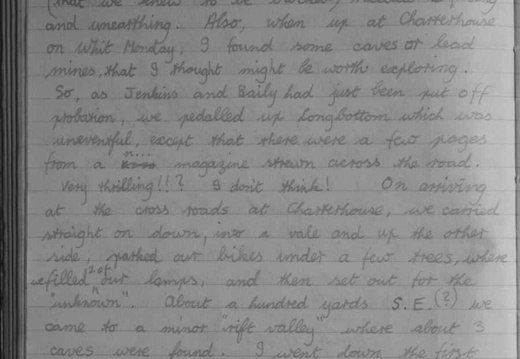 (that we knew to be
and unearthing. Also, when up at Charterhouse
on Whit Monday, I found some caves or lead
mines, that I thought might be worth exploring.
So, as Jenkins and Baily had just been put off
probation, we pedalled up Longbottom which was
uneventful, except that there were a few pages
from a magazine strewn across the road.
Very thrilling!!? I don't think! On arriving
at the cross roads at Charterhouse, we carried
straight on down, into a vale and up the other
side, parked our bikes under a few trees, where
refilled 2 of our lamps, and then set out for the
"unknown". About a hundred yards S.E.(?) we
came to a minor "rift valley" where about 3
caves were found. I went down the first